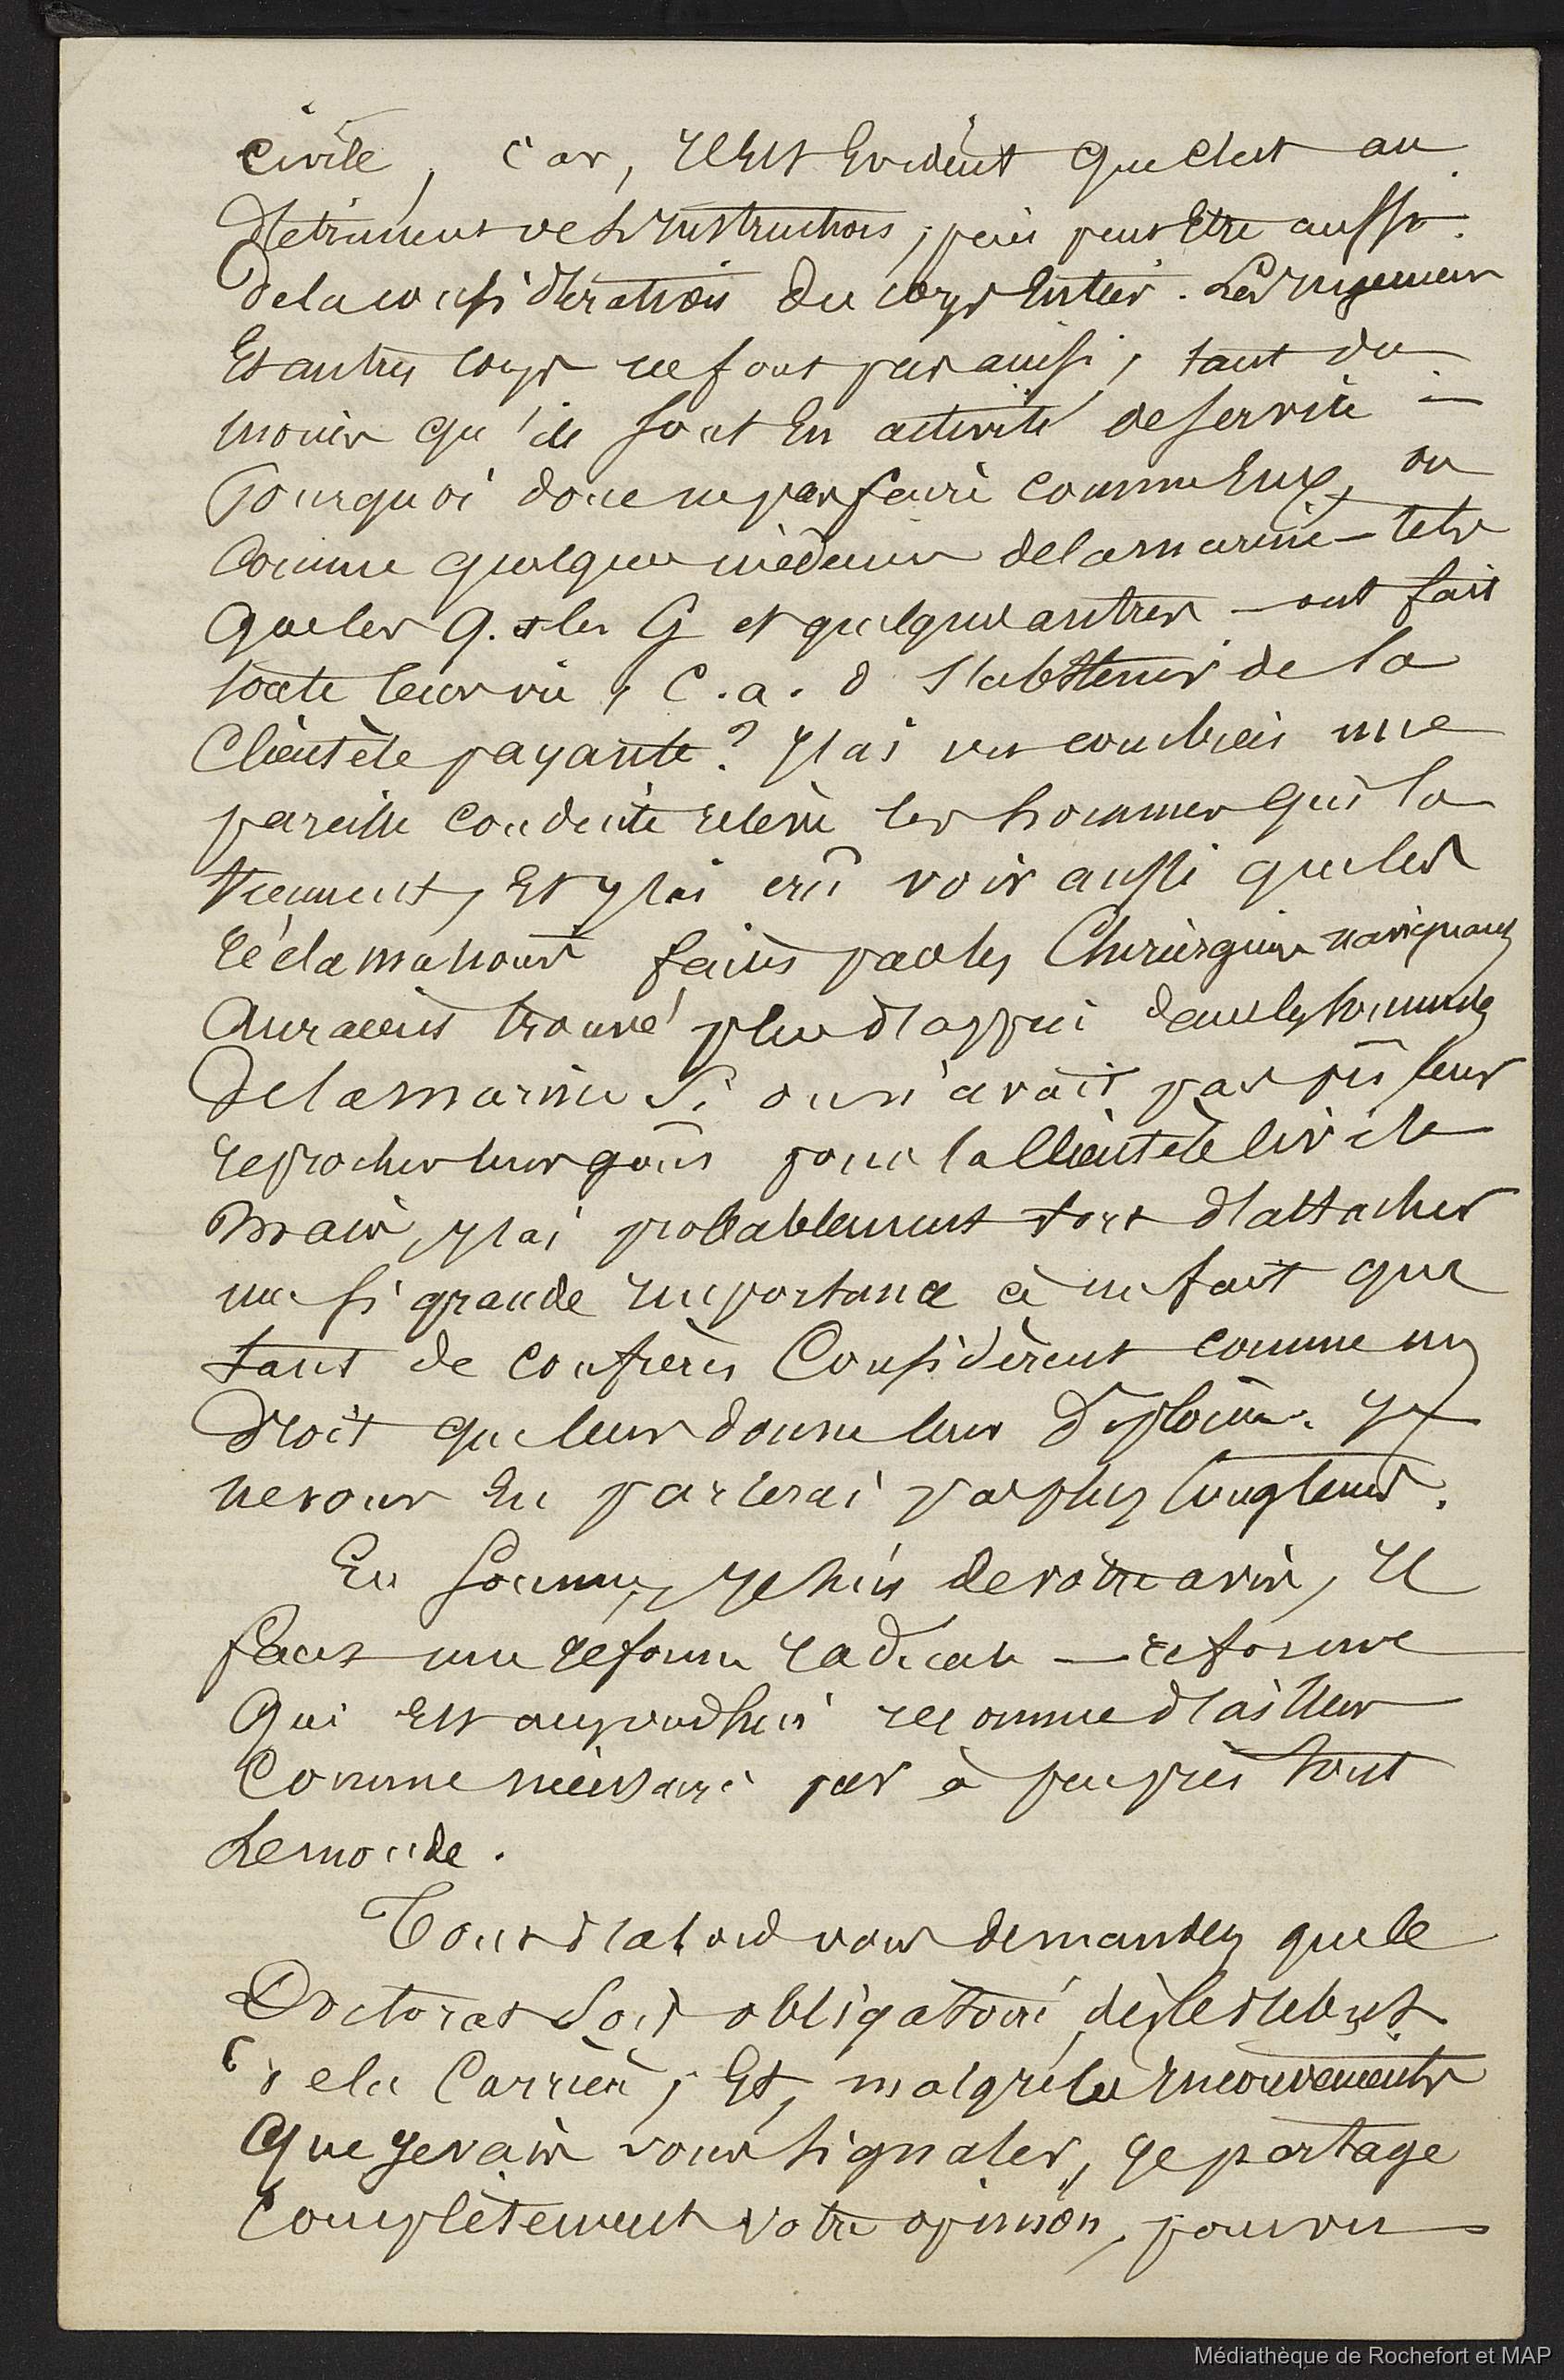 civile, car, il est évident que c'est au
détriment de l'instruction, puis peut être aussi
de la considération du corps entier. Les ingénieurs
et autres corps ne font pas ainsi, tant du
moins qu'ils sont en activité de service —
Pourquoi donc ne pas faire comme eux, ou
comme quelques médecins de la marine — tels
que les Q. et les G et quelques autres — ont fait
toute leur vie, c.a.d s'abstenir de la
clientèle payante? J'ai vu combien une
pareille conduite relève les hommes qui la
tiennent, et j'ai crû voir aussi que les
réclamations faites par les Chirurgiens navigants
auraient trouvé plus d'appui dans les hommes
de la marine si on n'avait pas pû leur
reprocher leur goût pour la clientèle civile
mais, j'ai probablement tort d'attacher
une si grande importance à un fait que
tant de confrères considèrent comme un
droit que leur donne leur diplôme. Je
ne vous en parlerai pas plus longtemps.
En somme, je suis de votre avis, il
faut une réforme radicale — réforme
qui est aujourd'hui reconnue d'ailleurs
comme nécessaire par à peu près tout
le monde.
Tout d'abord vous demandez que le
Doctorat soit obligatoire, dès le début
de la carrière, et, malgré les inconvénients
que je vais vous signaler, je partage
complètement votre opinion, pourvu
Médiathèque de Rochefort et MAP